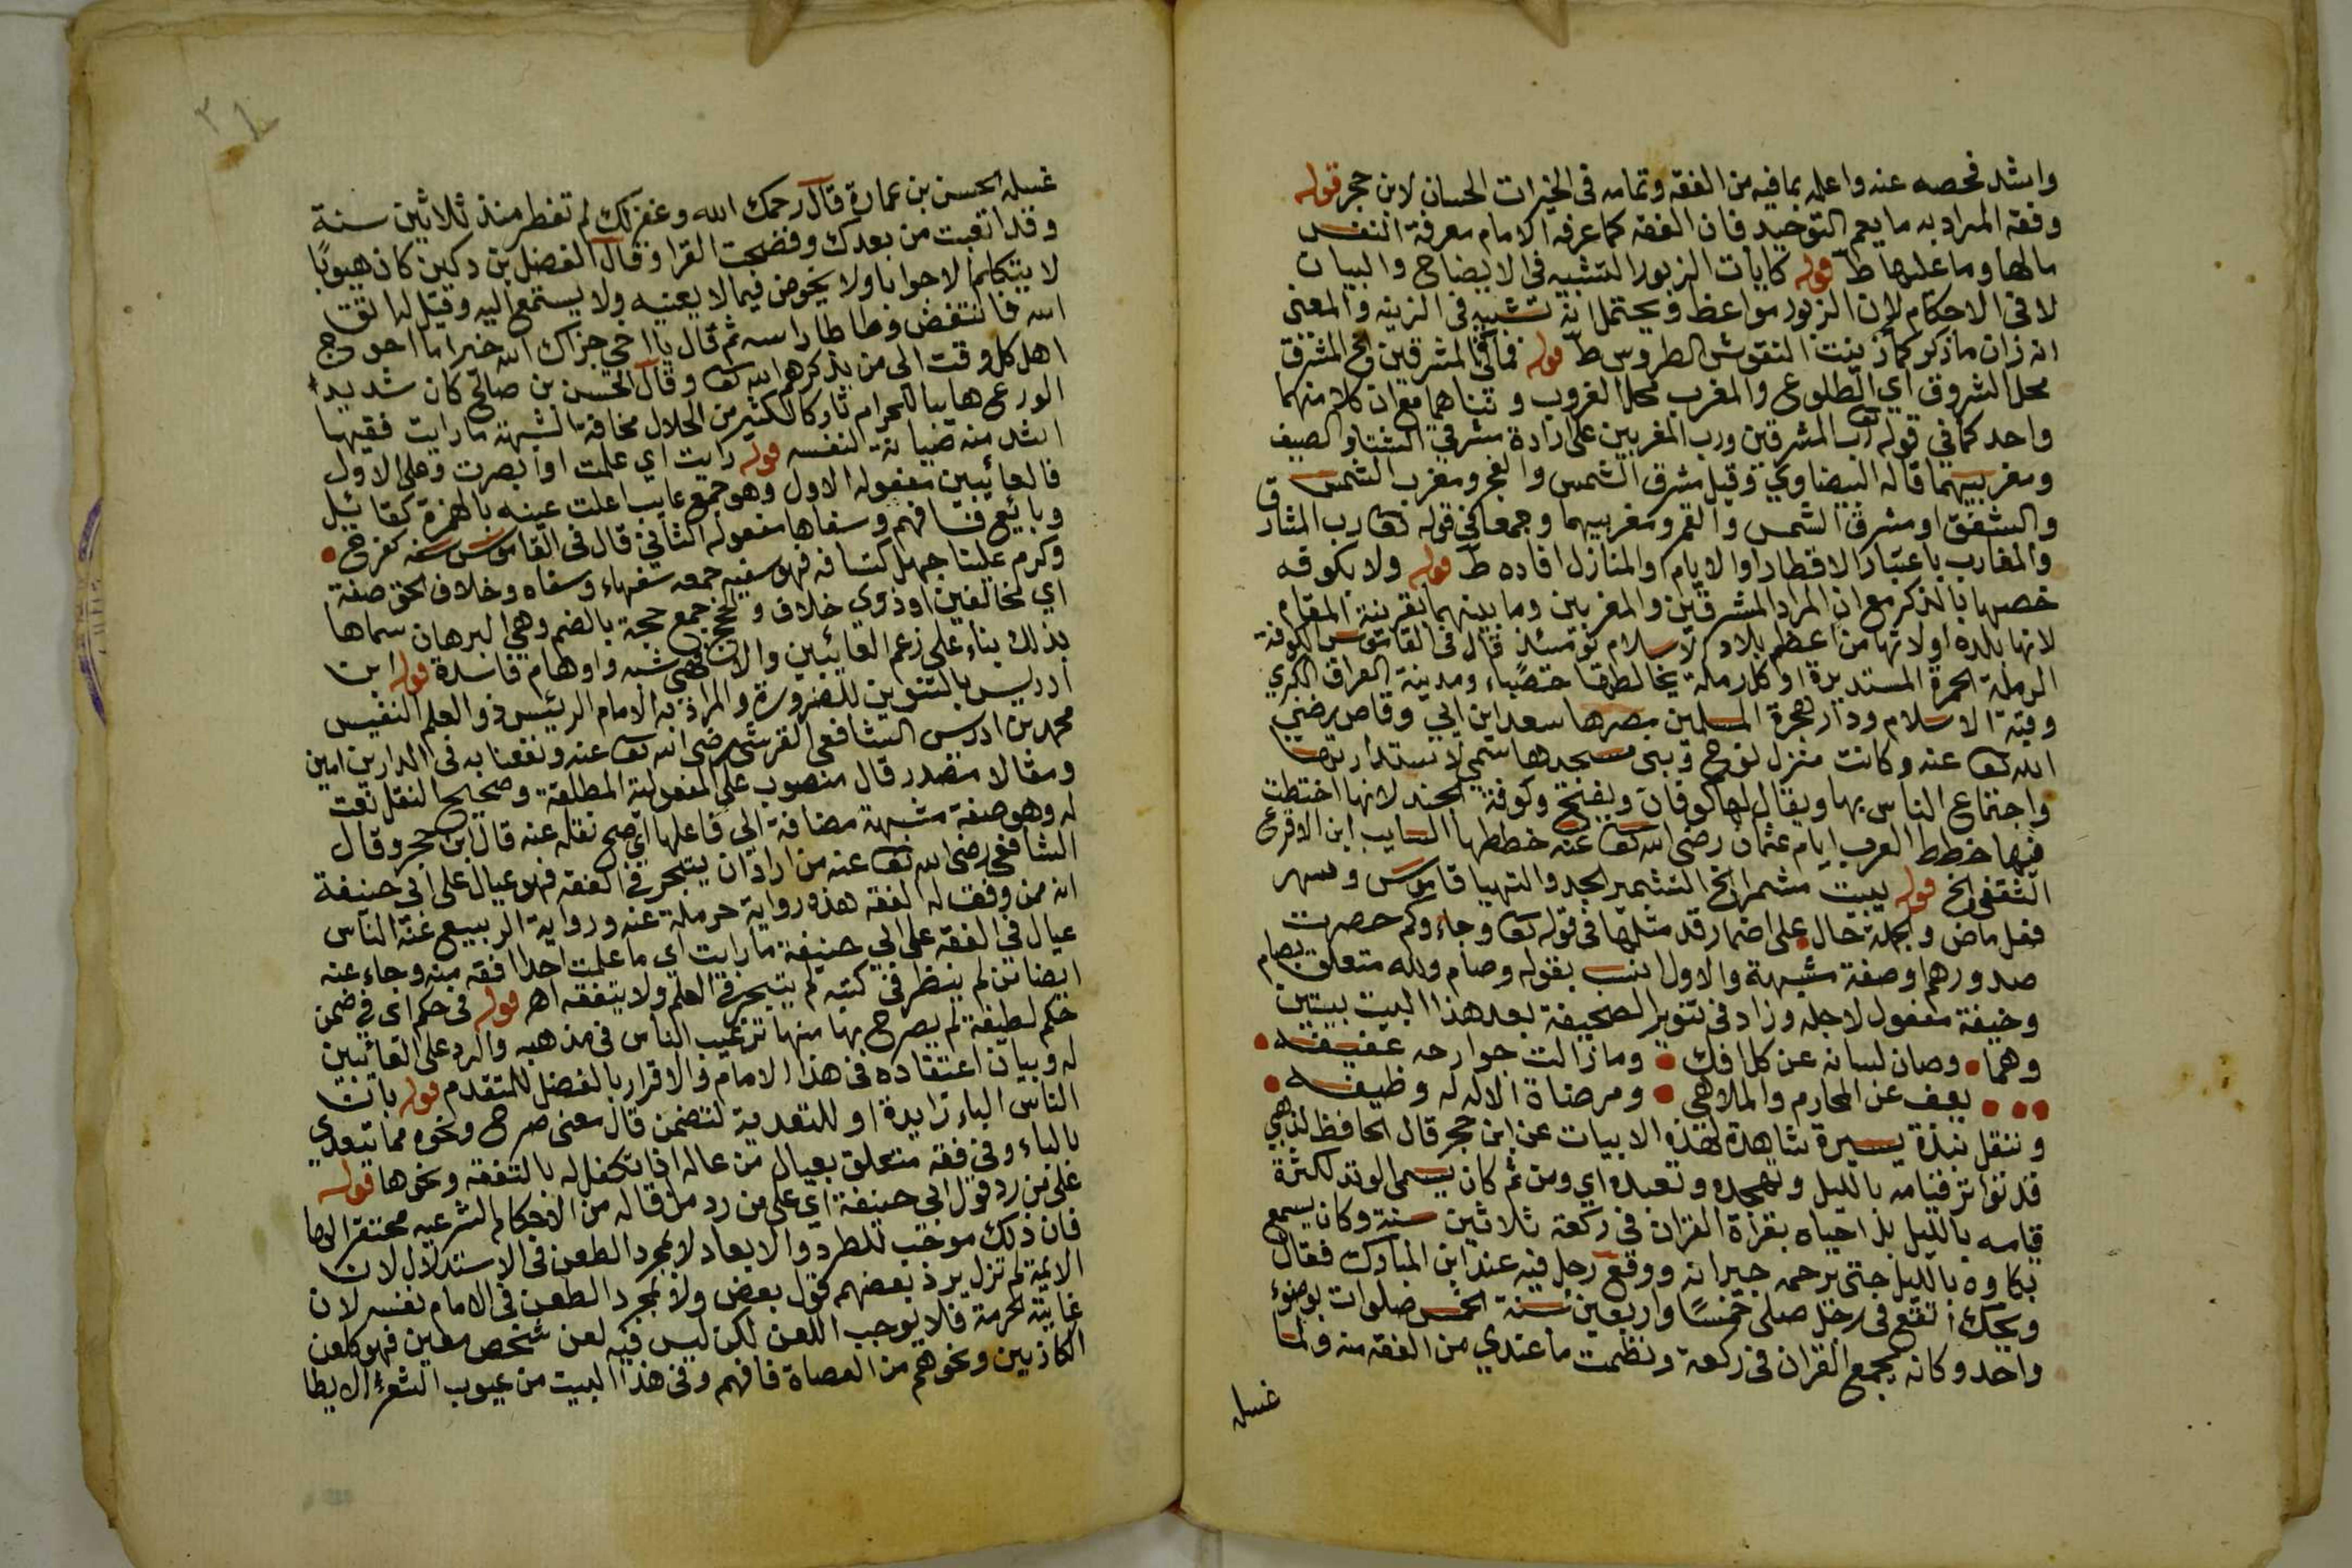 واشد فحصه عنه واعلمه بما فيه من الفقه وتمامه فى الخيرات الحسان لابن حجر قوله
وفقه المراد به ما يعم التوحيد فان الفقه كما عرفه الامام معرفة النفس
مالها وما عليها ط قوله كايات الزبور التشبيه فى الايضاح والبيان
لا فى الاحكام لان الزبور مواعظ ويحتمل انه تشبيه فى الزينه والمعنى
انه زان ما ذكر كما زينت النقوش الطروس ط قوله فما فى المشرقين الخ المشرق
محل الشروق اي الطلوع والمغرب محل الغروب وثناهما مع ان كلا منهما
واحد كما في قوله تعا رب المشرقين ورب المغربين على ارادة مشرقي الشتا والصيف
ومغربيهما قاله البيضاوي وقيل مشرق الشمس والفجر ومغرب الشمس
والشفق او مشرق الشمس والقمر ومغربيهما وجمعا في قوله تعا رب المشارق
والمغارب باعتبار الاقطار او الايام والمنازل افاده ط قوله ولا بكوفه
خصها بالذكر مع ان المراد المشرقين والمغربين وما بينهما بقرينة المقام
لانها بلده او لانها من اعظم بلاد الاسلام يومئذ قال فى القاموس الكوفة
الرملة الحمرة المستديرة او كل رملة يخالطها حصباء ومدينة العراق الكبري
وقبة الاسلام ودار هجرة المسلمين مصرها سعد ابن ابي وقاص رضي
الله تعا عنه وكانت منزل نوح وبنى مسجدها سمي لاستدارتها
واجتماع الناس بها ويقال لها كوفان ويفتح وكوفة الجند لانها اختطت
فيها خطط العرب ايام عثمان رضى الله تعا عنه خططها السايب ابن الاقرع
الثقفى الخ قوله يبيت مشمرا الخ التشمير الجد والتهيا قاموس وسهر
فعل ماض والجملة حال على اضمار قد مثلها فى قوله تعا وجاءوكم حصرت
صدورهم او صفة مشبهة والاول انسب بقوله وصام ولله متعلق بصام
وخيفة مفعول لاجله وزاد فى تنوير الصحيفة بعد هذا البيت بيتين
وهما • وصان لسانه عن كل افك • وما زالت جوارحه عفيفه •
• • • يعف عن المحارم والملاهي • ومرضاة الاله له وظيفه •
وننقل نبذة يسيرة شاهدة لهذه الابيات عن ابن حجر قال الحافظ الذهبي
قد تواتر قيامه بالليل وتهجده وتعبده اي ومن ثم كان يسمى الوتد لكثرة
قيامه بالليل بل احياه بقراة القران فى ركعة ثلاثين سنة وكان يسمع
بكاوه بالليل حتى يرحمه جيرانه ووقع رجل فيه عند ابن المبارك فقال
ويحك اتقع فى رجل صلى خمسا واربعين سنة الخمس صلوات بوضوء
واحد وكان يجمع القران فى ركعة وتعلمت ما عندي من الفقه منه ولما
غسله
غسله الحسن بن عمارة قال رحمك الله وغفر لك لم تفطر منذ ثلاثين سنة
وقد اتعبت من بعدك وفضحت القرا وقال الفضل بن دكين كان هيوبا
لا يتكلم الا جوابا ولا يخوض فيما لا يعنيه ولا يستمع اليه وقيل له اتق
الله فانتفض وطاطا راسه ثم قال يا اخي جزاك الله خيرا ما احوج
اهل كل وقت الى من يذكرهم الله تعا وقال الحسن بن صالح كان شديد
الورع هايبا للحرام تاركا لكثير من الحلال مخافة الشبهة ما رايت فقيها
اشد منه صيانة لنفسه قوله رايت اي علمت او ابصرت وعلى الاول
فالعائبين مفعوله الاول وهو جمع عايب اعلت عينه بالهمزة كقائيل
وبائيع فافهم وسفاها مفعوله الثاني قال فى القاموس سفه كفرح •
وكرم علينا جهل كتسافه فهو سفيه جمعه سفهاء وسفاه وخلاف الحق صفة
اي مخالفين او ذوي خلاف والحجج جمع حجة بالضم وهي البرهان سماها
بذلك بناء على زعم العائبين والا فهي شبه واوهام فاسدة قوله ابن
ادريس بالتنوين للضرورة والمراد به الامام الرئيس ذو العلم النفيس
محمد بن ادريس الشافعى القرشى رضى الله تعا عنه ونفعنا به فى الدارين امين
ومقالا مصدر قال منصوب على المفعولية المطلقة وصحيح النقل نعت
له وهو صفة مشبهة مضافة الي فاعلها اي صح نقله عنه قال ابن حجر وقال
الشافعى رضى الله تعا عنه من اراد ان يتبحر في الفقه فهو عيال على ابي حنيفة
انه ممن وفق له الفقه هذه رواية حرملة عنه ورواية الربيع عنه الناس
عيال في الفقه على ابي حنيفة ما رايت اي ما علمت احدا افقه منه وجاء عنه
ايضا من لم ينظر فى كتبه لم يتبحر في العلم ولا يتفقه اهـ قوله فى حكم اى في ضمن
حكم لطيفة لم يصرح بها منها ترغيب الناس فى مذهبه والرد على العائبين
له وبيان اعتقاده فى هذا الامام والاقرار بالفضل للمتقدم قوله بان
الناس الباء زايدة او للتعدية لتضمن قال معنى صرح ونحوه مما يتعدي
بالباء وفي فقه متعلق بعيال من عاله اذا تكفل له بالنفقة ونحوها قوله
على من رد قول ابي حنيفة اي على من رد ما قاله من الاحكام الشرعيه محتقرا لها
فان ذلك موجب للطرد والابعاد لا لمجرد الطعن فى الاستدلال لان
الايمة لم تزل يرد بعضهم قول بعض ولا لمجرد الطعن فى الامام نفسه لان
غايته الحرمة فلا يوجب اللعن لكن ليس فيه لعن شخص معين فهو كلعن
الكاذبين ونحوهم من العصاة فافهم وفى هذا البيت من عيوب الشعر الايطا